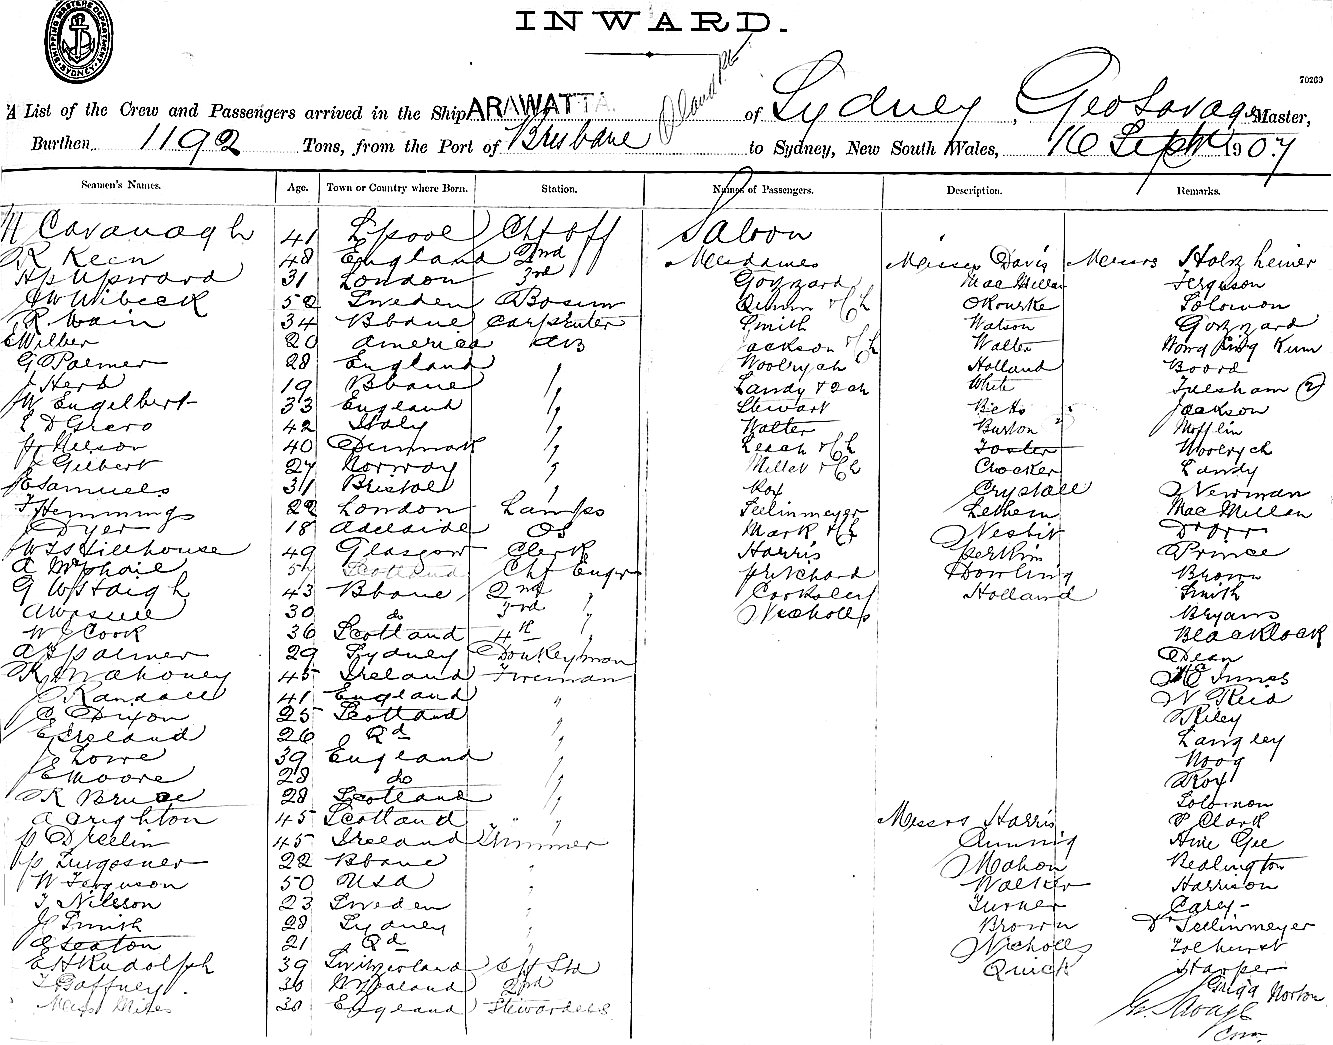 INWARD.
SHIPPING MASTERS DEPARTMENT SYDNEY
70269
A List of the Crew and Passengers arrived in the Ship ARAWATTA of Sydney, Geo Savage Master,
Burthen 1192 Tons, from the Port of Brisbane to Sydney, New South Wales, 16 Sept 1907
Seamen's Names. Age. Town or Country where Born. Station. Names of Passengers. Description. Remarks.
M Cavanagh 41 L'pool Chf Off Saloon
R Keen 48 England 2nd Mesdames Misses Davis Messrs Holzheiner
Hp Upward 31 London 3rd Gozzard MacMillan Ferguson
Wibeck 52 Sweden Bosun Quinn & Ch ORourke Solomon
R Wain 34 Bbane Carpenter Smith Watson Gozzard
E Wilber 20 America AB Jackson & Ch Walter Wong Ping Kum
G Palmer 28 England " Woolrych Holland Board
J Herd 19 Bbane " Landy & 2 ch White Fulsham (2)
W Engelbert 33 England " Stewart Betts Jackson
42 Italy " Walter Burton Mofflin
H Nelson 40 Denmark " Leach & Ch Foster Woolrych
E Gilbert 27 Norway " Millet & Ch Crocker Landy
E Samuels 31 Bristol " Roy Crystall Newman
T Hemmings 22 London Lamps Seelinmeyer Lethem MacMillan
Dyer 18 Adelaide OS Mark & Ch Nesbit D Orr
W T S Hillhouse 49 Glasgow Clerk Harris Perkin Prince
A McPhail 57 Scotland Chf Engr Pritchard Dowling Brown
G W Staigh 43 Bbane 2nd " Cooksley Holland Smith
30 do 3rd " Nicholls Bryans
W J Cook 36 Scotland 4th " Blacklock
A F Palmer 29 Sydney Donkeyman Dean
R Mahoney 45 Ireland Fireman McInnes
J Randall 41 England " W Reid
C Dixon 25 Scotland " Riley
E Ireland 26 Qd " Langley
J Lowe 39 England " Hoog
E Moore 28 do " Roy
R Bruce 28 Scotland " Solomon
A Crighton 45 Scotland " Messrs Harris P Clark
P Dreelin 45 Ireland Trimmer Cunning Ame Gee
22 Bbane " Mahon Realington
W Ferguson 50 USA " Walker Harrison
T Nilsson 23 Sweden " Turner Carey
J C Smith 28 Sydney " Brown Dr Seelinmeyer
C Seaton 21 Qd " Nicholls Tolhurst
E H Rudolph 39 Switzerland Chf Std Quick Harper
T Gaffney 36 N Zealand 2nd Norton
Miss Miles 30 England Stewardess Geo Savage